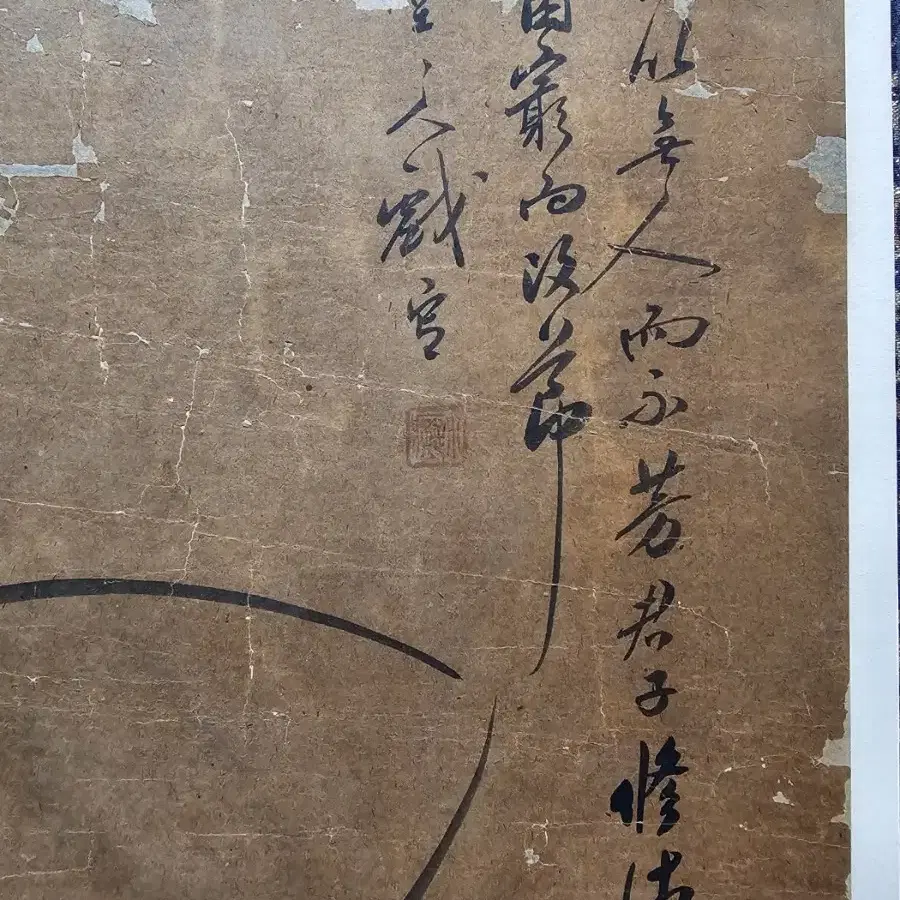 以無人而不芳君子修
困窮而改節
人戲寫